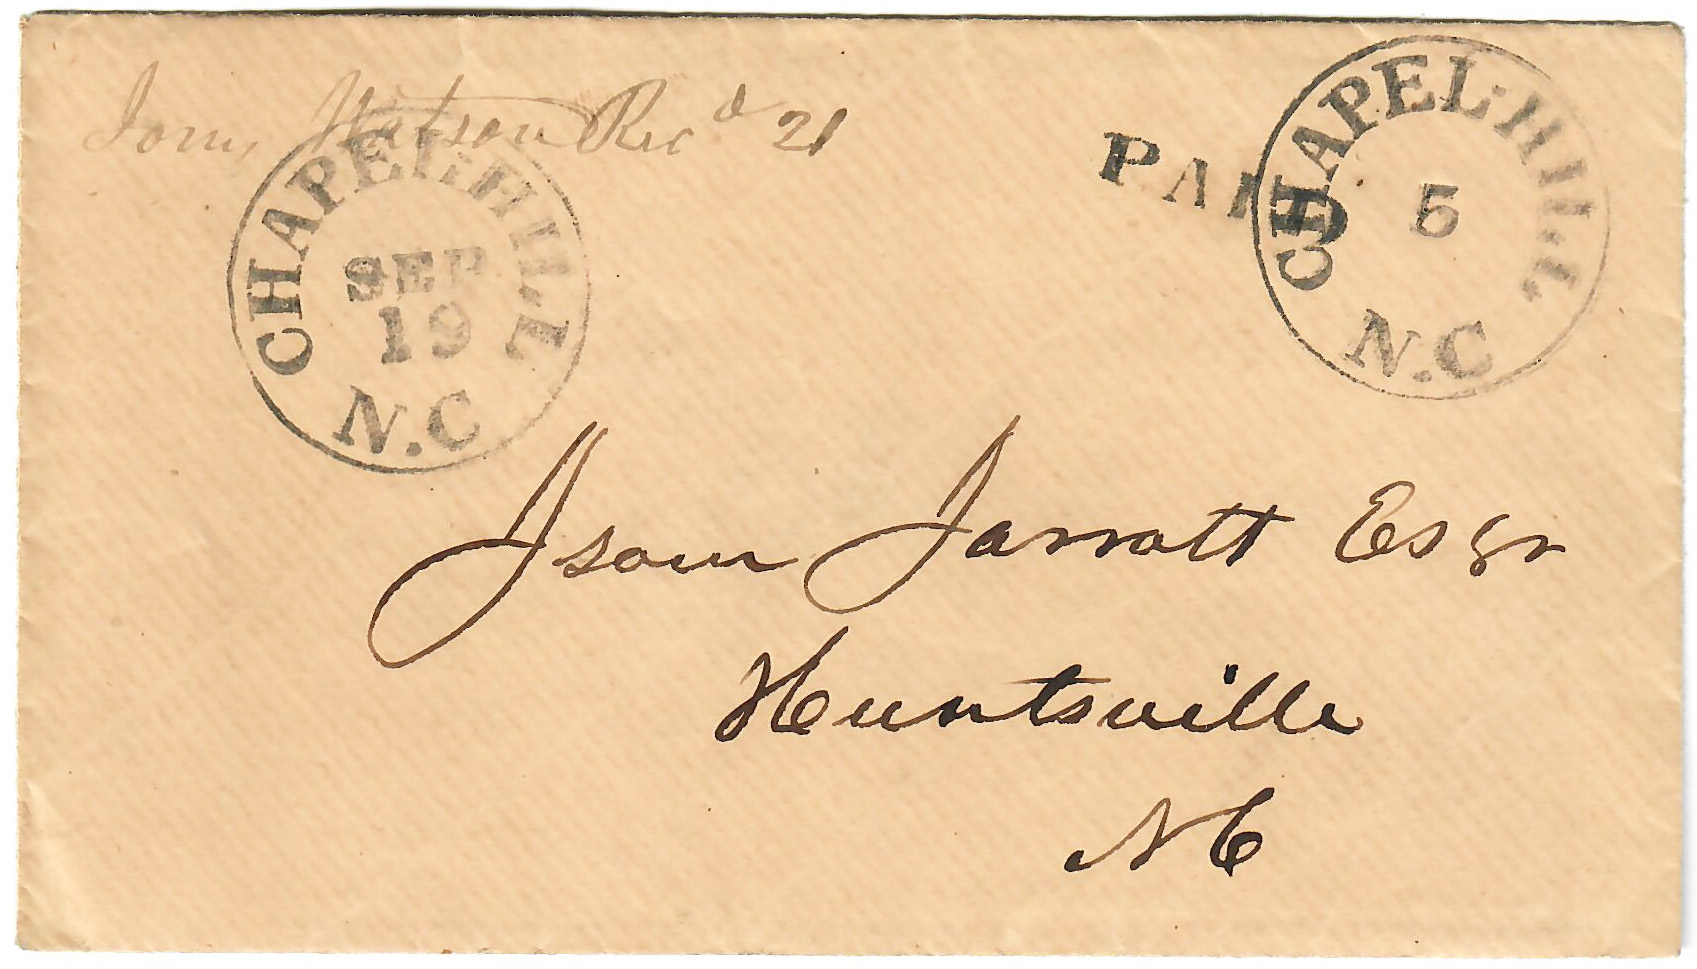 Watson Recd 21
CHAPEL-HILL
SEP
19
N.C
PAID
CHAPEL-HILL
5
N.C
Isom Jarratt Esqr
Huntsville
NC